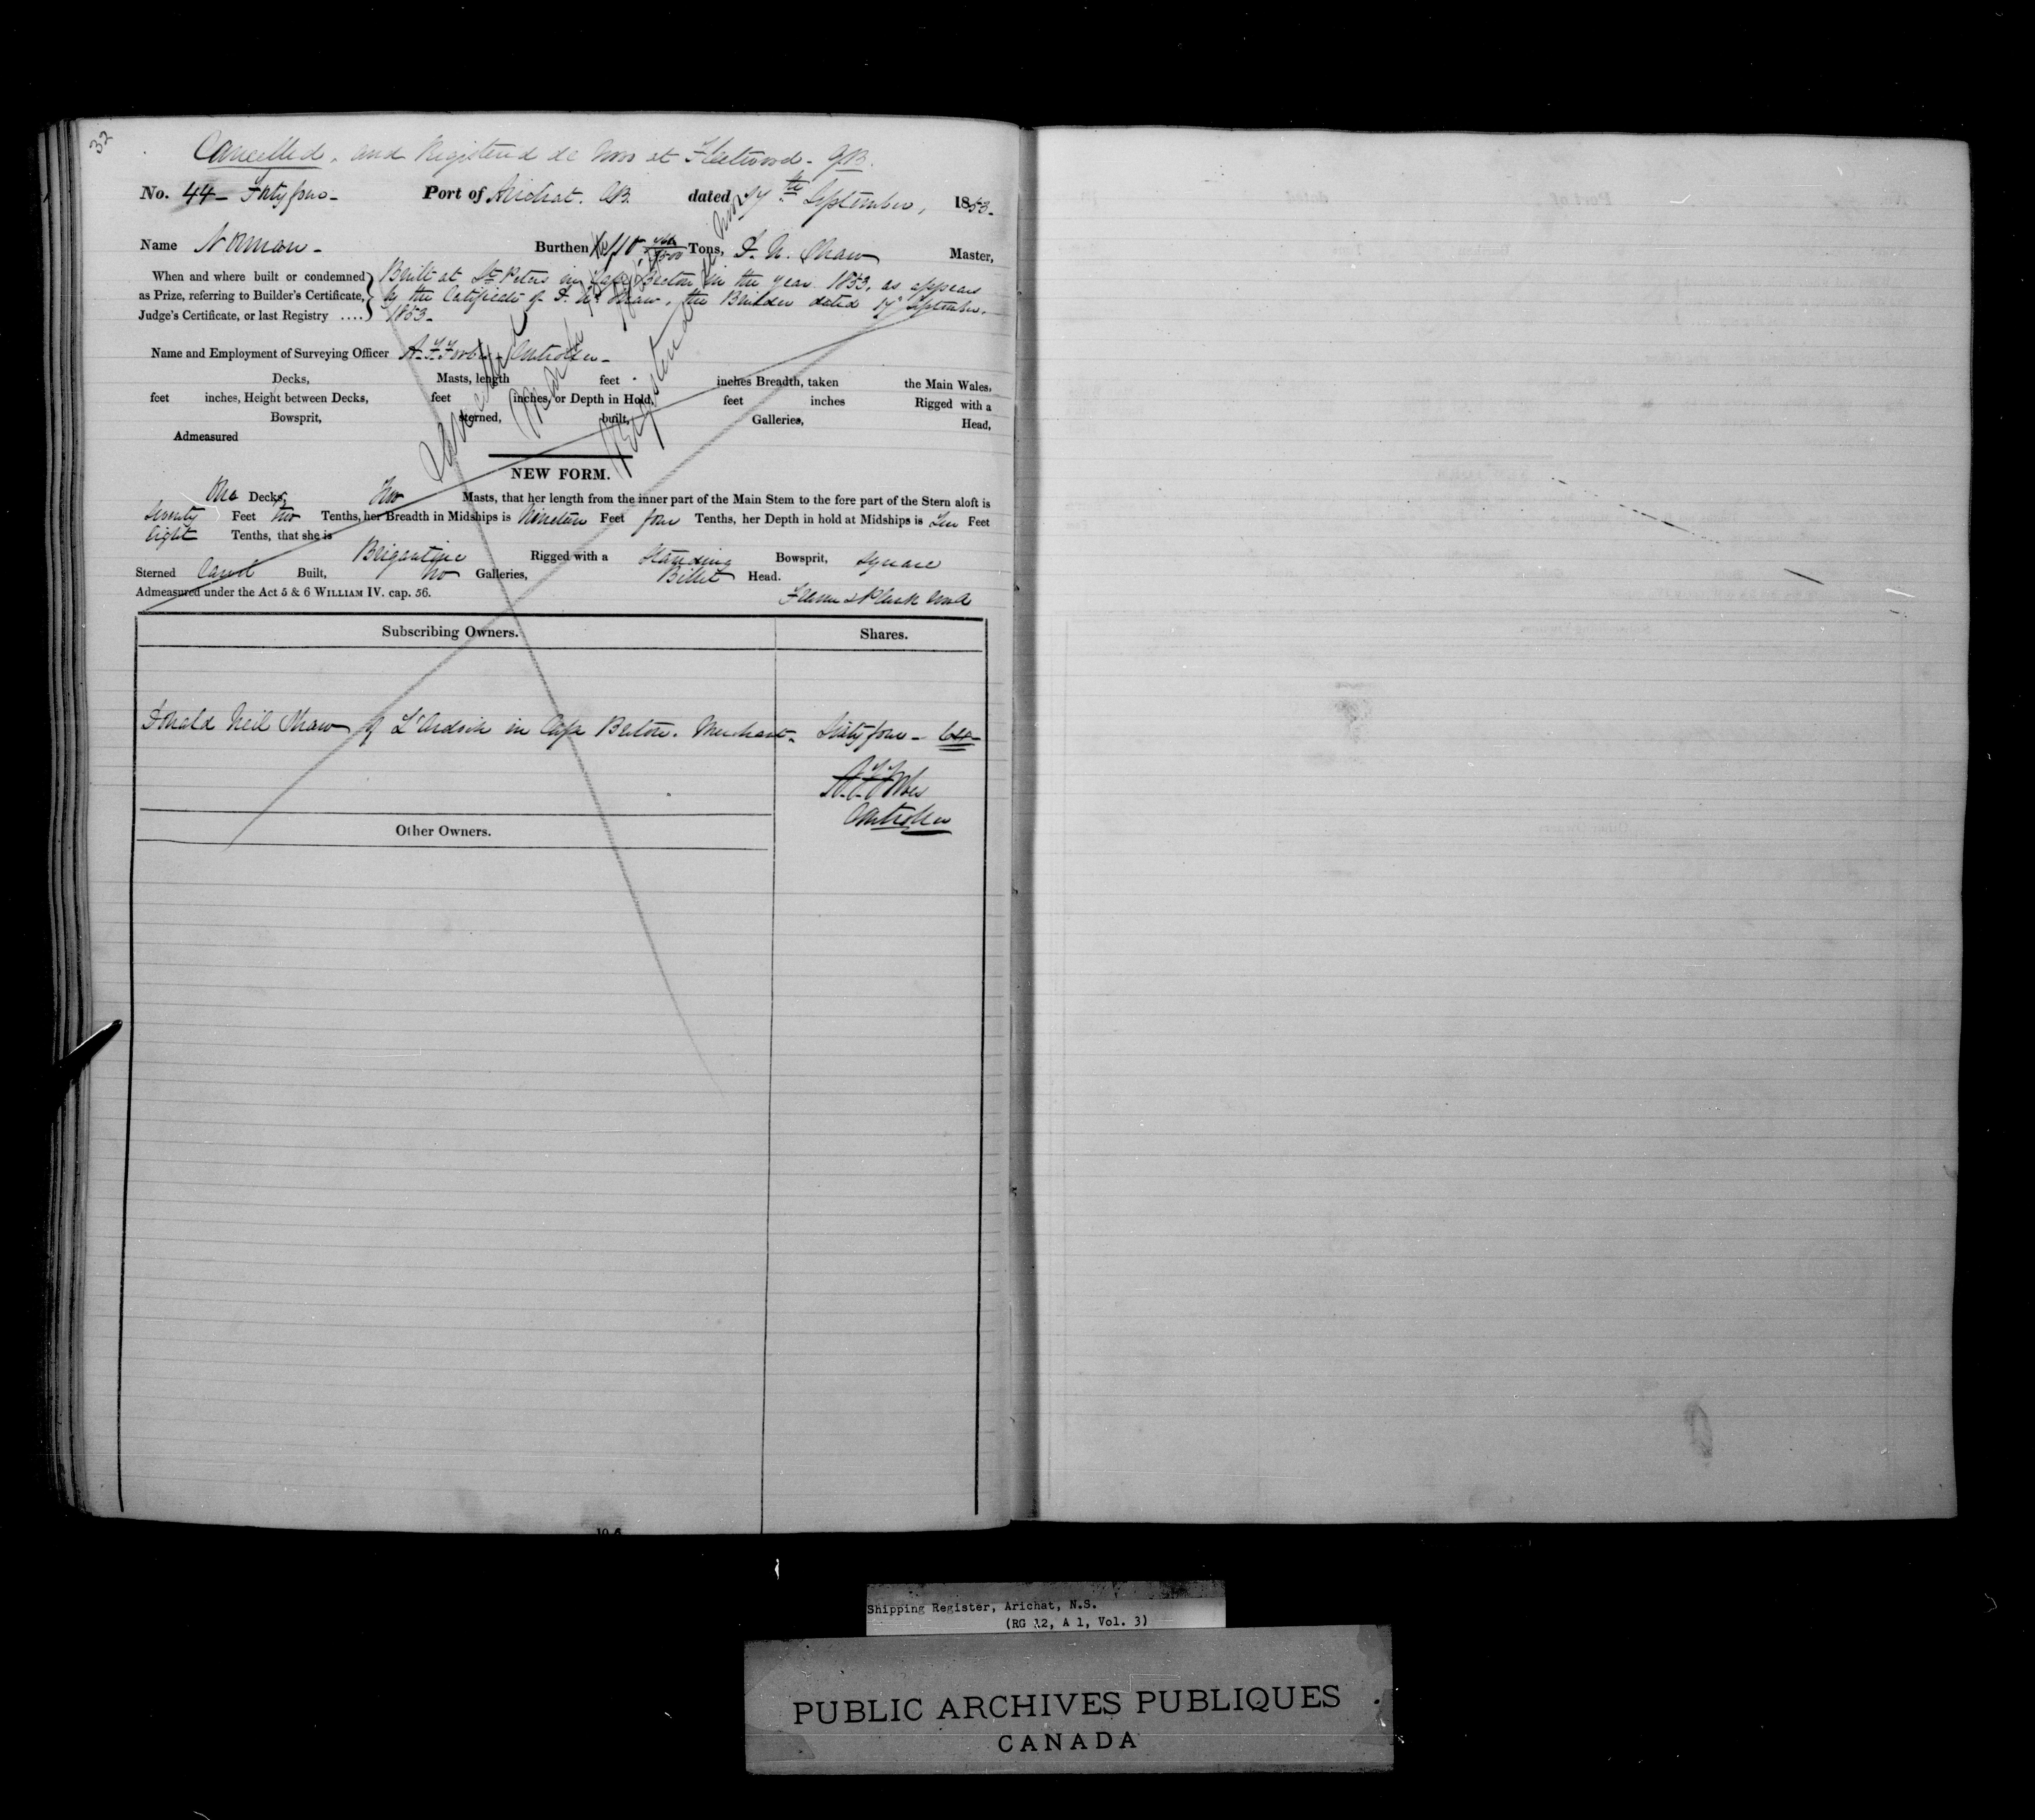 32
Cancelled, and Registered de Novo at Fleetwood - G.B.
No. 44 - Forty four - Port of Arichat. C.B. dated 27th September, 1853.
Name Norman - Burthen 110 Tons, D. N. Shaw Master,
When and where built or condemned as Prize, referring to Builder's Certificate, Judge's Certificate, or last Registry ....
Built at St. Peters in Cape Breton in the year 1853, as appears
by the Certificate of D. N. Shaw, the Builder dated 17th September
1853 -
Name and Employment of Surveying Officer A. F. Forbes, Controller -
Decks, Masts, length feet inches Breadth, taken the Main Wales,
feet inches, Height between Decks, feet inches, or Depth in Hold, feet inches Rigged with a
Bowsprit, sterned, built, Galleries, Head,
Admeasured
Cancelled
Registered de Novo
NEW FORM.
One Decks, Two Masts, that her length from the inner part of the Main Stem to the fore part of the Stern aloft is
Seventy Feet two Tenths, her Breadth in Midships is Nineteen Feet four Tenths, her Depth in hold at Midships is Ten Feet
Eight Tenths, that she is
Brigantine Rigged with a Standing Bowsprit, Square
Sterned Carvel Built, No Galleries, Billet Head.
Admeasured under the Act 5 & 6 WILLIAM IV. cap. 56. Frame & Plank Wood
Subscribing Owners. Shares.
Donald Neil Shaw of L'Ardoise in Cape Breton. Merchant - Sixty four - 64 -
A. F. Forbes
Controller
Other Owners.
Shipping Register, Arichat, N.S.
(RG 12, A 1, Vol. 3)
PUBLIC ARCHIVES PUBLIQUES
CANADA